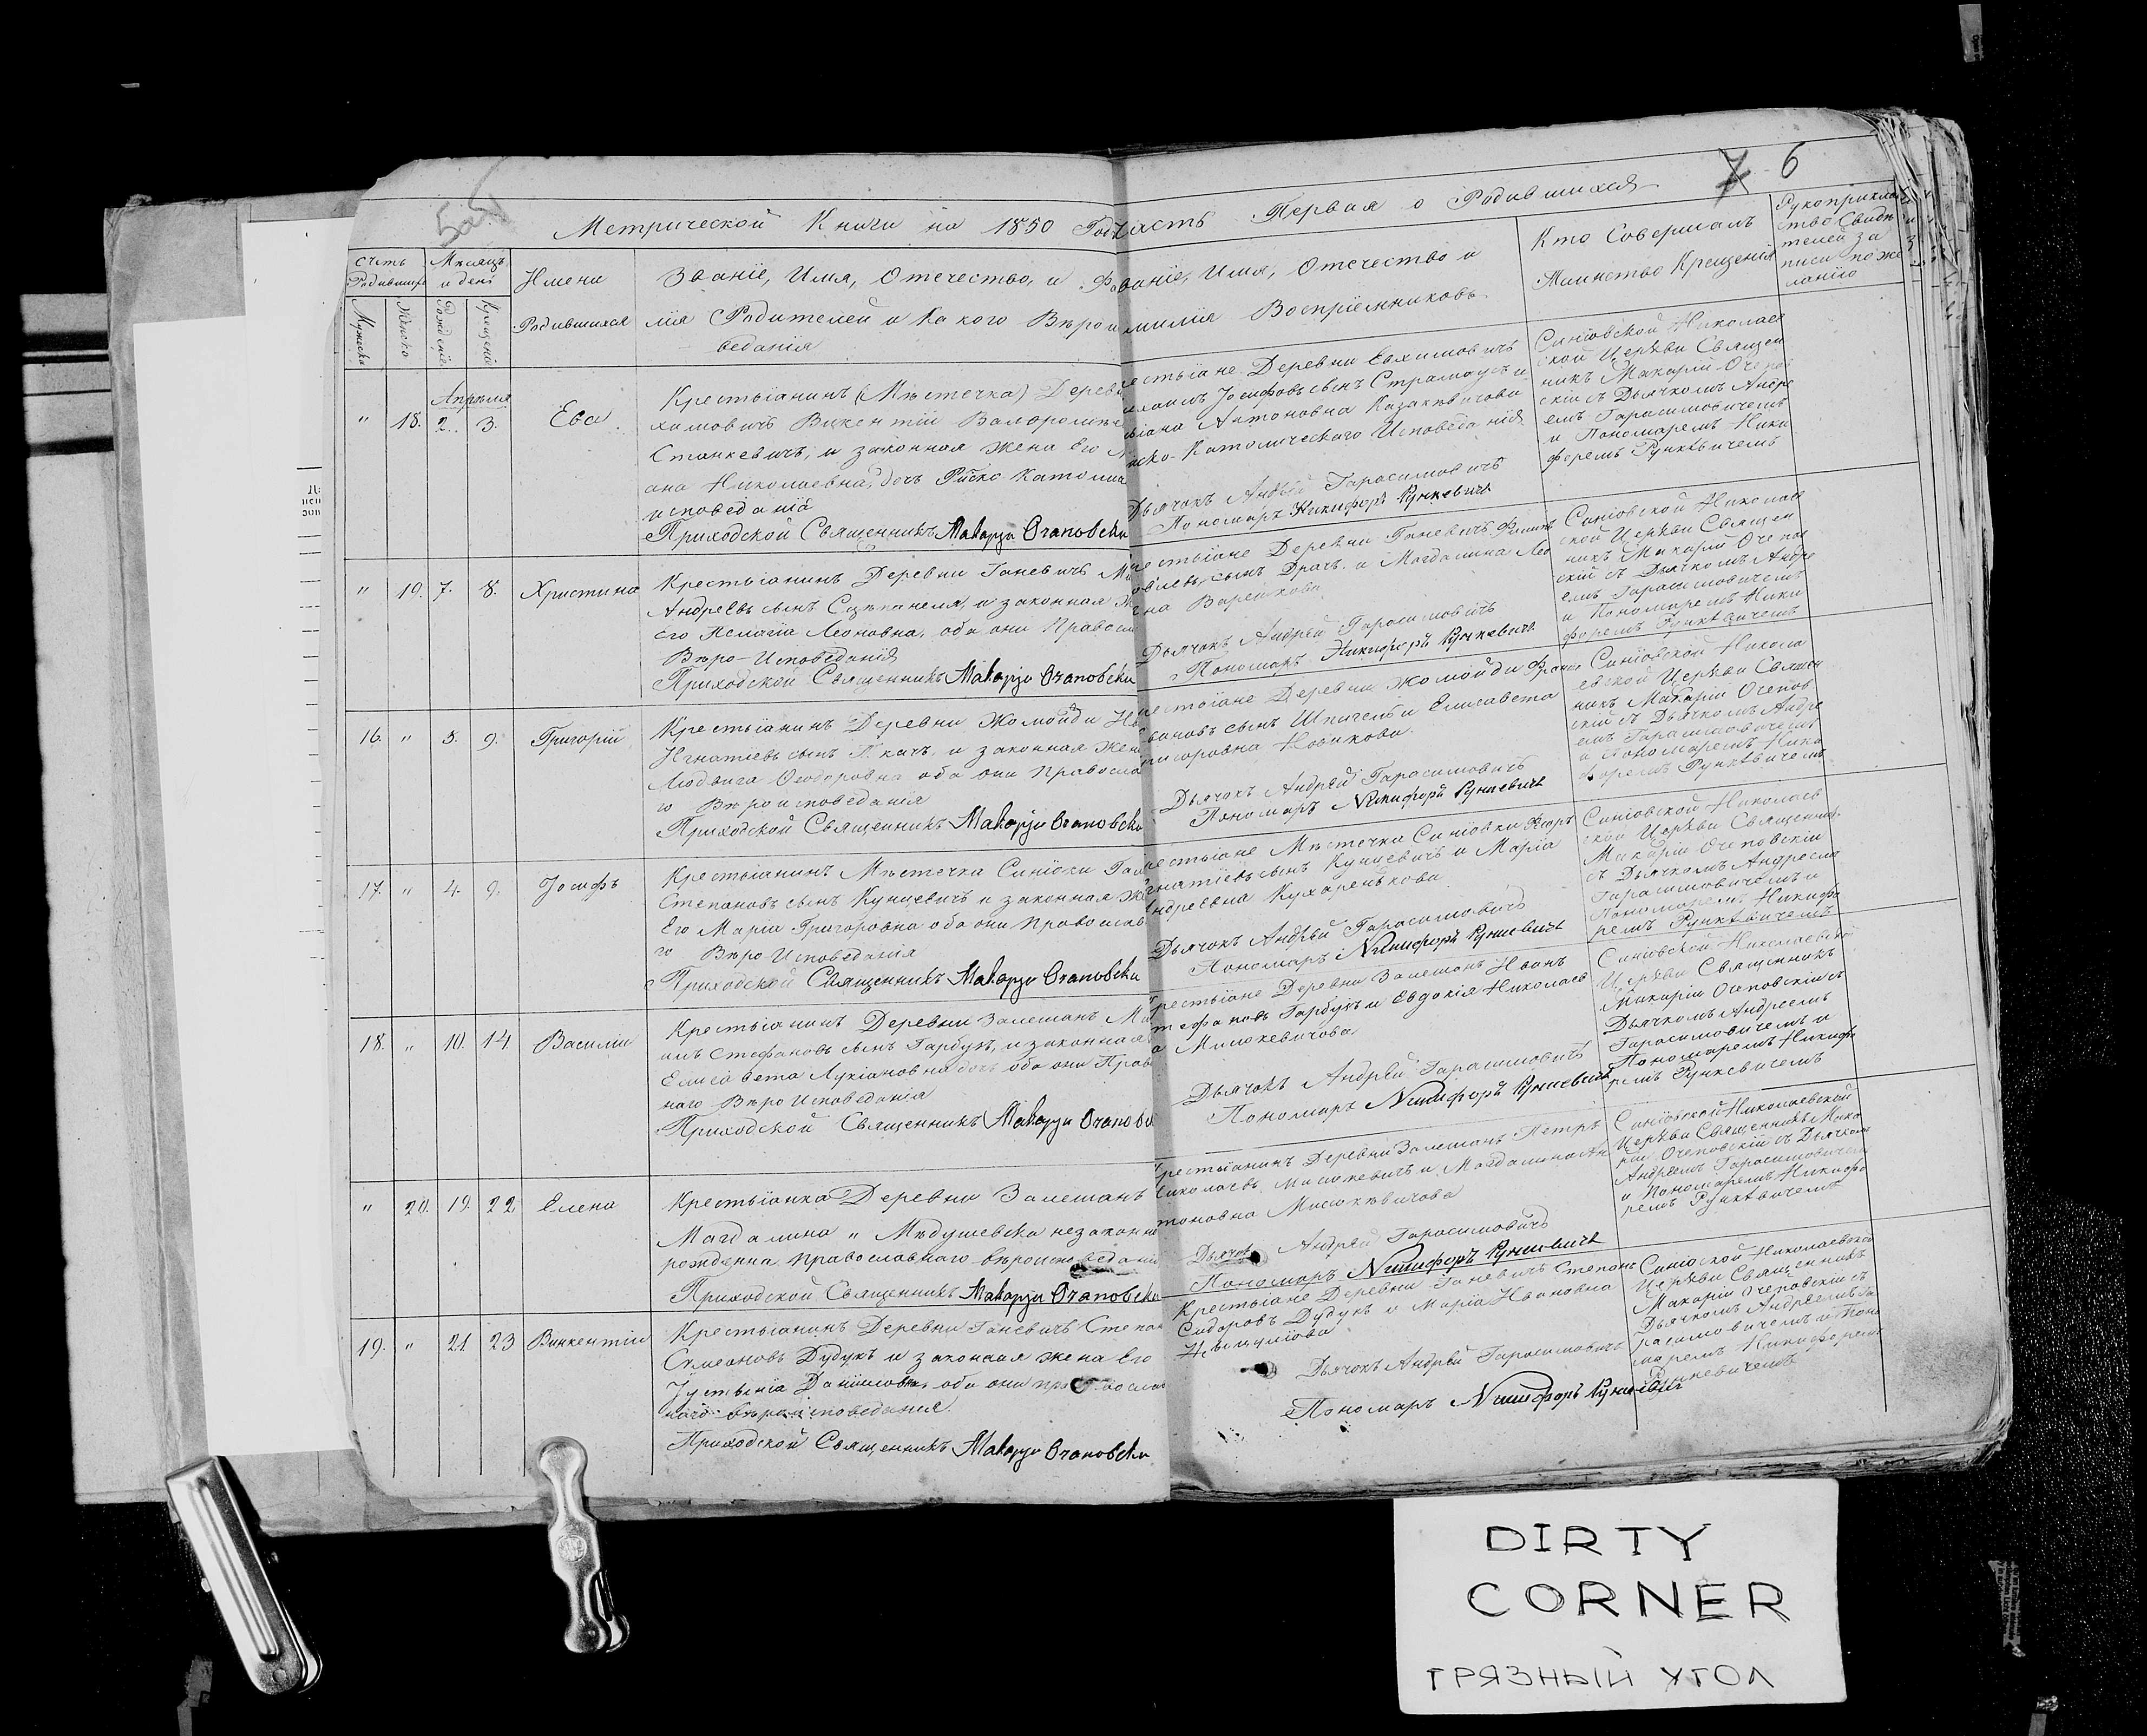 5об
7 6
Метрической Книги на 1850 Годъ
часть Первая о Родившихся
Счетъ
Родившихся
Мѣсяцъ
и день
Имена
Родившихся
Мужеска
Женска
Рожденіе
Крещеніе
Званіе, Имя, Отечество, и Фа
лія Родителей и Ка кого Вѣрои
веданія
Званіе, Имя, Отечество и
милія Воспріемниковъ
Кто Совершалъ
Таинство Крещенія
Рукоприклад
тво Свидѣ
телей за
писи по же
ланію
Апрѣля
" 18. 2. 3. Ева.
Крестьіанинъ (Мѣстечка) Дерев
химовичъ Викентіи
Станкевичъ, и законная жена Его
ана Николаевна, дочь Римско Католи
исповеданіа
Приходской Священникъ Макарзи Очаповски
естьіане Деревни Евхимовичъ
Іосифовъ сынъ
Антоновна
ско-Католическаго Исповеданія
Дьячокъ Андрей Гарасимовичъ
Пономаръ Никифоръ Рункевичъ
Синіовской Николаев
ской Церкви Священ
никъ Макарій Очепов
скій съ Дьячкомъ Андре
емъ Гарасимовичемъ
и Пономаремъ Ники
форемъ Рунктвичемъ
" 19. 7. 8. Христина
Крестьіанинъ Деревни Ганевичъ Ми
Андреевъ сынъ и законная Ж
его Пелагіа Леоновна, оба они Правосл
Вѣро-Исповеданія
Приходской Священникъ Макарзи Очаповски
естьіане Деревни Ганевичъ
сынъ Драчъ и Магдалина Лео
на
Дьячокъ Андрей Гарасимовичъ
Пономаръ Никифоръ Рункевичъ
Синіовской Николаев
ской Церкви Священ
никъ Макарій Очепов
скій съ Дьячкомъ Андре
емъ Гарасимовичемъ
и Пономаремъ Ники
форемъ Рунктвичемъ
16. " 3. 9. Григорій
Крестьіанинъ Деревни Жомойди
Игнатіевъ сынъ Ткачъ, и законная Жена
Людвига Ѳеодоровна оба они Правосла
го Вѣроисповеданія
Приходской Священникъ Макарзи Очаповски
естьіане Деревни Жомойди
вановъ сынъ и Елисавета
Новикова.
Дьячокъ Андрей Гарасимовичъ
Пономаръ Никифоръ Рункевичъ
Синіовской Никола
евской Церкви Священ
никъ Макарій Очепов
скій съ Дьячкомъ Андре
емъ Гарасимовичемъ
и Пономаремъ Ники
форемъ Рунктвичемъ
17. " 4. 9. Іосифъ
Крестьіанинъ Мѣстечка Синіовки
Степановъ сынъ Кунцевичъ и законная Же
Его Маріа Григоровна оба они Правосла
го Вѣро-Исповеданія
Приходской Священникъ Макарзи Очаповски
естьіане Мѣстечка Синіовки
гнатіевъ сынъ Кунцевичъ и Маріа
Андреевна Кухаренкова
Дьячокъ Андрей Гарасимовичъ
Пономаръ Никифоръ Рункевичъ
Синіовской Николаев
ской Церкви Священникъ
Макарій Очеповскій
съ Дьячкомъ Андреемъ
Гарасимовичемъ и
Пономаремъ Никифо
ремъ Рунктвичемъ
18. " 10. 14 Василій
Крестьіанинъ Деревни Залешанъ
илъ Стефановъ сынъ Гарбузъ, и законная
Елисавета Лукіановна дочь оба они Прав
наго Вѣро Исповеданія
Приходской Священникъ Макарзи Очаповс
рестьіане Деревни Залешанъ Иванъ
тефановъ Гарбузъ и Евдокія Николаев
а
Дьячокъ Андрей Гарасимовичъ
Пономаръ Никифоръ Рункевичъ
Синіовской Николаевской
Церкви Священникъ
Макарій Очеповскій съ
Дьячкомъ Андреемъ
Гарасимовичемъ и
Пономаремъ Никифо
ремъ Рункевичемъ
" 20. 19. 22 Елена
Крестьіанка Деревни Залешанъ
Магдалина " незаконно
рожденна Православнаго вѣроисповеданія
Приходской Священникъ Макарзи Очаповски
рестьіанинъ Деревни Залешанъ Петръ
иколаевъ и Магдалина Ан
тоновна
Дьячокъ Андрей Гарасимовичъ
Пономаръ Никифоръ Рункевичъ
Синіовской Николаевской
Церкви Священникъ Мака
рій Очеповскій съ Дьячкомъ
Андреемъ Гарасимовичемъ
и Пономаремъ Никифо
ремъ Рунктвичемъ
19. " 21 23 Викентіи
Крестьіанинъ Деревни Ганевичъ Степан
Симеоновъ Дудукъ и законная жена Его
Іустыніа Даніиловна, оба они православ
наго вѣроисповеданія.
Приходской Священникъ Макарзи Очаповски
Крестьіане Деревни Ганевичъ Степанъ
Сидоровъ Дудукъ и Маріа Ивановна
Дьячокъ Андрей Гарасимовичъ
Пономаръ Никифоръ Рункевичъ
Синіоской Николаевской
Церкви Священникъ
Макарій Очеповскій съ
Дьячкомъ Андреемъ Га
расимовичемъ и Поно
маремъ Никифоремъ
Рункевичемъ
DIRTY
CORNER
ГРЯЗНЫЙ УГОЛ